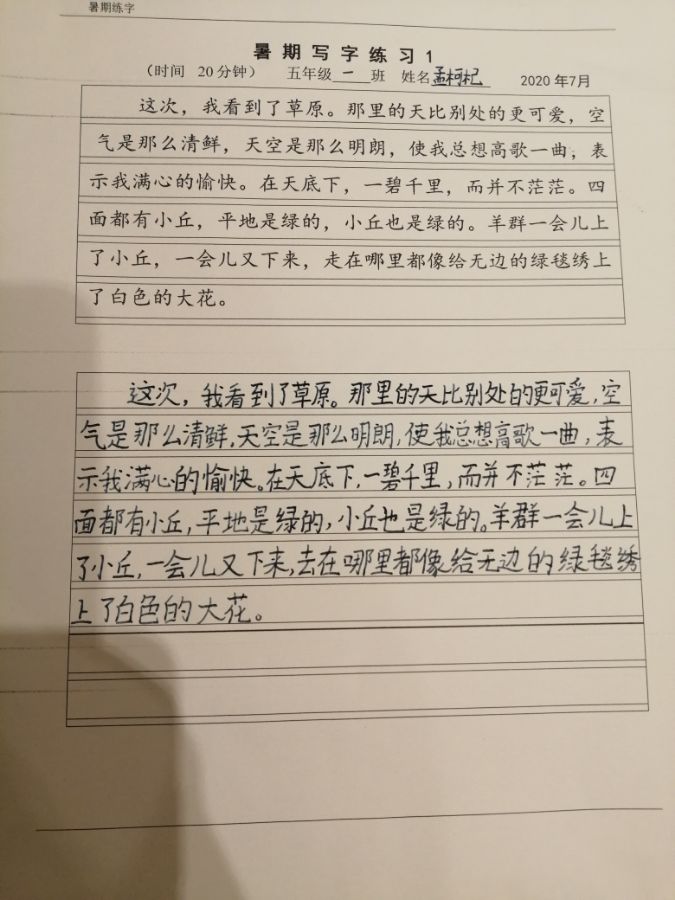 暑期练字
暑期写字练习1
（时间 20分钟） 五年级一班 姓名孟柯杞 2020年7月
这次，我看到了草原。那里的天比别处的更可爱，空
气是那么清鲜，天空是那么明朗，使我总想高歌一曲，表
示我满心的愉快。在天底下，一碧千里，而并不茫茫。四
面都有小丘，平地是绿的，小丘也是绿的。羊群一会儿上
了小丘，一会儿又下来，走在哪里都像给无边的绿毯绣上
了白色的大花。
这次，我看到了草原。那里的天比别处的更可爱，空
气是那么清鲜，天空是那么明朗，使我总想高歌一曲，表
示我满心的愉快。在天底下，一碧千里，而并不茫茫。四
面都有小丘，平地是绿的，小丘也是绿的。羊群一会儿上
了小丘，一会儿又下来，去在哪里都像给无边的绿毯绣
上了白色的大花。